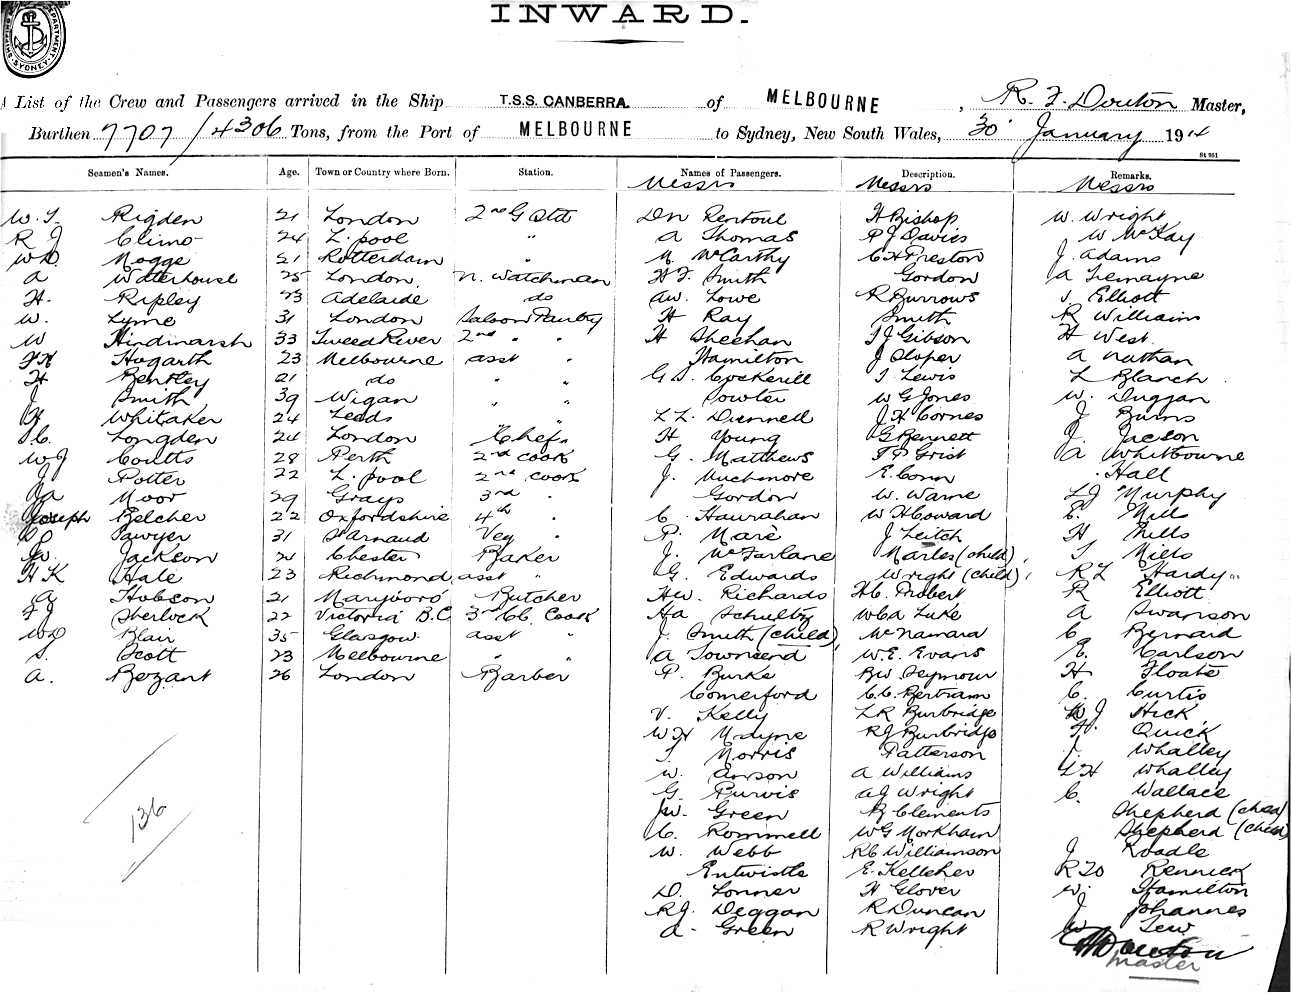 INWARD.
DEPARTMENT. SYDNEY.
A List of the Crew and Passengers arrived in the Ship T.S.S. CANBERRA. of MELBOURNE, R. J. Douton Master,
Burthen 7707/4306 Tons, from the Port of MELBOURNE to Sydney, New South Wales, 30 January 1914
St 951
Seamen's Names. Age. Town or Country where Born. Station. Names of Passengers. Description. Remarks.
Messrs Messrs Messrs
W. T. Rigden 21 London 2nd G Std DN Rentoul H Bishop W. Wright
R J Climo 24 L.pool " A Thomas P J Davies W McKay
WD. Mogge 21 Rotterdam " M McCarthy C H Preston J. Adams
A Waterhouse 25 London. N. Watchman H F. Smith Gordon A Temayne
H. Ripley 23 Adelaide do AW. Lowe R Burrows J Elliott
W. Lyme 31 London Saloon Pantry H Ray Smith R Williams
W Hindmarsh 33 Tweed River 2nd " " H Sheehan T J Gibson H West
FH Hogarth 23 Melbourne asst " Hamilton J Sloper A Nathan
H Bentley 21 do " " G S. Cockerill T Lewis L Blanch
J Smith 39 Wigan " " Powter W G Jones W. Duggan
H Whitaker 24 Leeds " " L L. Diennell J H Cornes J Burns
C. Longden 24 London Chef. H Young G Bennett J. Jacson
WJ Coutts 28 Perth 2nd Cook G. Matthews T P Grist A Whitbourne
J Potter 22 L.pool 2nd Cook J. Muchmore E. Conn Hall
JA Moor 29 Grays 3rd " Gordon W. Warne L J Murphy
Joseph Belcher 22 Oxfordshire 4th " C. Haurahan W Howard E. Mill
Sawyer 31 St Arnaud Veg " P. Mare J Leitch H Mills
W. Jackson 21 Chester Baker J. McFarlane Marles (child) T Mills
H K Hale 23 Richmond asst " G. Edwards Wright (child) R L Hardy
A Hobson 21 Maryboro Butcher HW. Richards H C. Probert R Elliott
F J Sherlock 22 Victoria B.C 3rd Cl. Cook HA Schultz WCA Luke A Swanson
WD Blair 35 Glasgow asst " J. Smith (child) McNamara C. Bernard
S. Scott 23 Melbourne " " A Townsend W.E. Evans E. Carlson
A. Bozant 26 London Barber P. Burke BW Seymour H Floate
Comerford C.C. Bertram C. Curtis
V. Kelly L R Burbridge W J Hick
WH Mayne R J Burbridge H. Quick
T Morris Patterson J. Whalley
W. Aorson A Williams L H Whalley
G. Purvis A J Wright C. Wallace
136
JW. Green R Clements Shepherd (child)
C. Rommell W G Markham Shepherd (child)
W. Webb R C Williamson J Roadle
Entwistle E. Kelleher R TO Rennick
D. Lonner H Glover W. Hamilton
RJ. Deggan R Duncan J Johannes
A. Green R Wright W Lew
Douton
Master